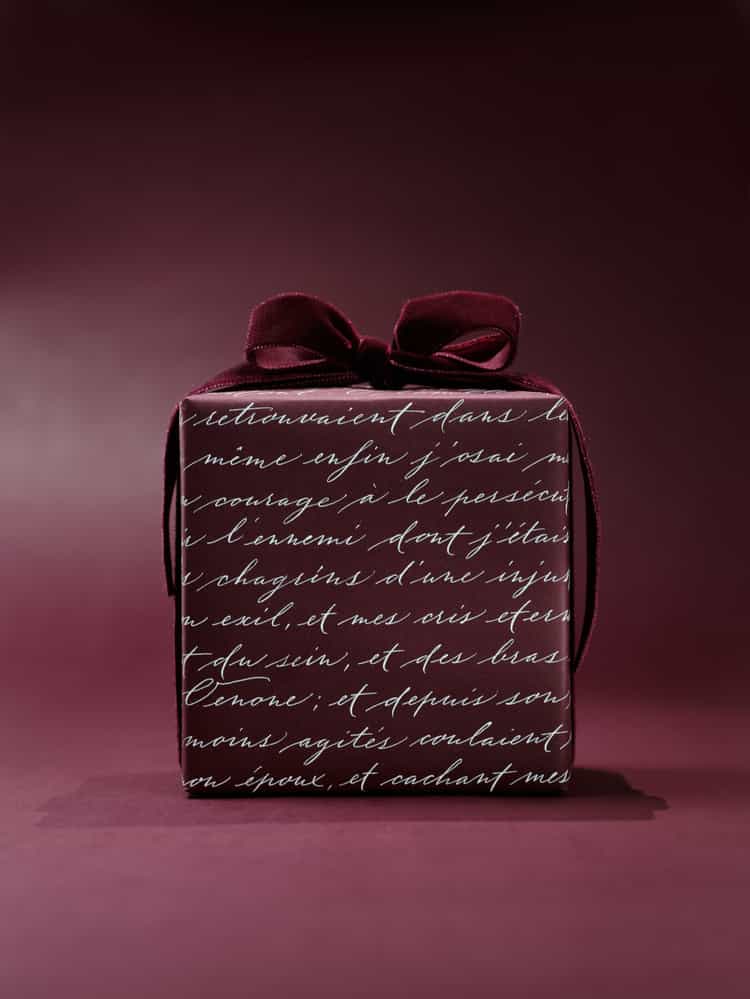 retrouvaient dans le
même enfin j'osai m
courage à le persécu
l'ennemi dont j'étais
chagrins d'une inju
exil, et mes cris etern
du sein, et des bras
Œnone; et depuis son
moins agités coulaient,
époux, et cachant mes